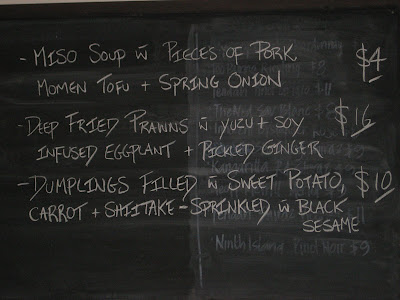 - MISO SOUP w̄ PIECES OF PORK, $4
MOMEN TOFU + SPRING ONION
- DEEP FRIED PRAWNS w̄ YUZU + SOY $16
INFUSED EGGPLANT + PICKLED GINGER
- DUMPLINGS FILLED w̄ SWEET POTATO, $10
CARROT + SHIITAKE - SPRINKLED w̄ BLACK
SESAME
Ninth Island Pinot Noir $9